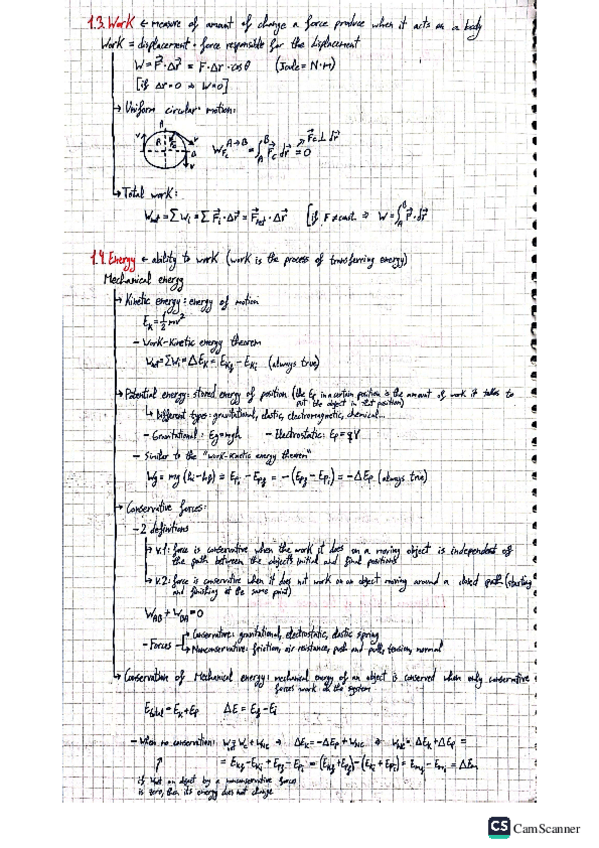 1.3. Work ← measure of amount of change a force produce when it acts on a body
Work = displacement · force responsible for the displacement
W = F⃗ · Δr⃗ = F · Δr · cos θ (Joule = N·m)
[if Δr = 0 ⇒ W = 0]
→ Uniform circular motion:
A
v
R
Fc
v
B
v
W_Fc^(A→B) = ∫_A^B F⃗c · dr⃗ = 0
F⃗c ⊥ dr⃗
→ Total work:
Wnet = ΣWi = ΣF⃗i · Δr⃗ = F⃗net · Δr⃗ [if F ≠ const. ⇒ W = ∫_A^B F⃗ · dr⃗
1.4. Energy ← ability to work (work is the process of transferring energy)
Mechanical energy
→ Kinetic energy: energy of motion
Ek = 1/2 mv²
– Work-Kinetic energy theorem
Wnet = ΣWi = ΔEk = Ekf − Eki (always true)
→ Potential energy: stored energy of position (the Ep in a certain position is the amount of work it takes to
put the object in that position)
↳ Different types: gravitational, elastic, electromagnetic, chemical...
– Gravitational: Eg = mgh – Electrostatic: Ep = qV
– Similar to the "work-kinetic energy theorem"
Wg = mg (hi − hf) = Epi − Epf = −(Epf − Epi) = −ΔEp (always true)
→ Conservative forces:
– 2 definitions
→ v.1: force is conservative when the work it does on a moving object is independent of
the path between the object's initial and final positions
→ v.2: force is conservative when it does not work on an object moving around a closed path (starting
and finishing at the same point)
WAB + WBA = 0
– Forces → Conservative: gravitational, electrostatic, elastic spring
→ Nonconservative: friction, air resistance, push and pulls, tension, normal
→ Conservation of Mechanical energy: mechanical energy of an object is conserved when only conservative
forces work on the system
Etotal = Ek + Ep ΔE = Ef − Ei
– When no conservation: W = Wc + WNC → ΔEk = −ΔEp + WNC ⇒ WNC = ΔEk + ΔEp =
= Ekf − Eki + Epf − Epi = (Ekf + Epf) − (Eki + Epi) = Emf − Emi = ΔEm
if work on object by a nonconservative force
is zero, then its energy does not change
CS CamScanner